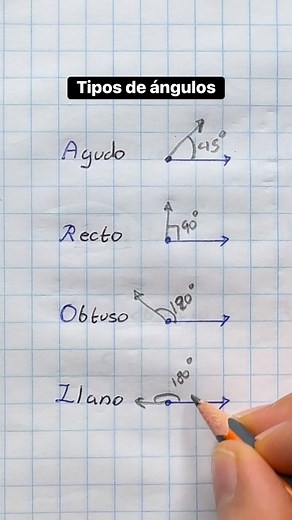 Tipos de ángulos
Agudo 45°
Recto 90°
Obtuso 120°
Llano 180°